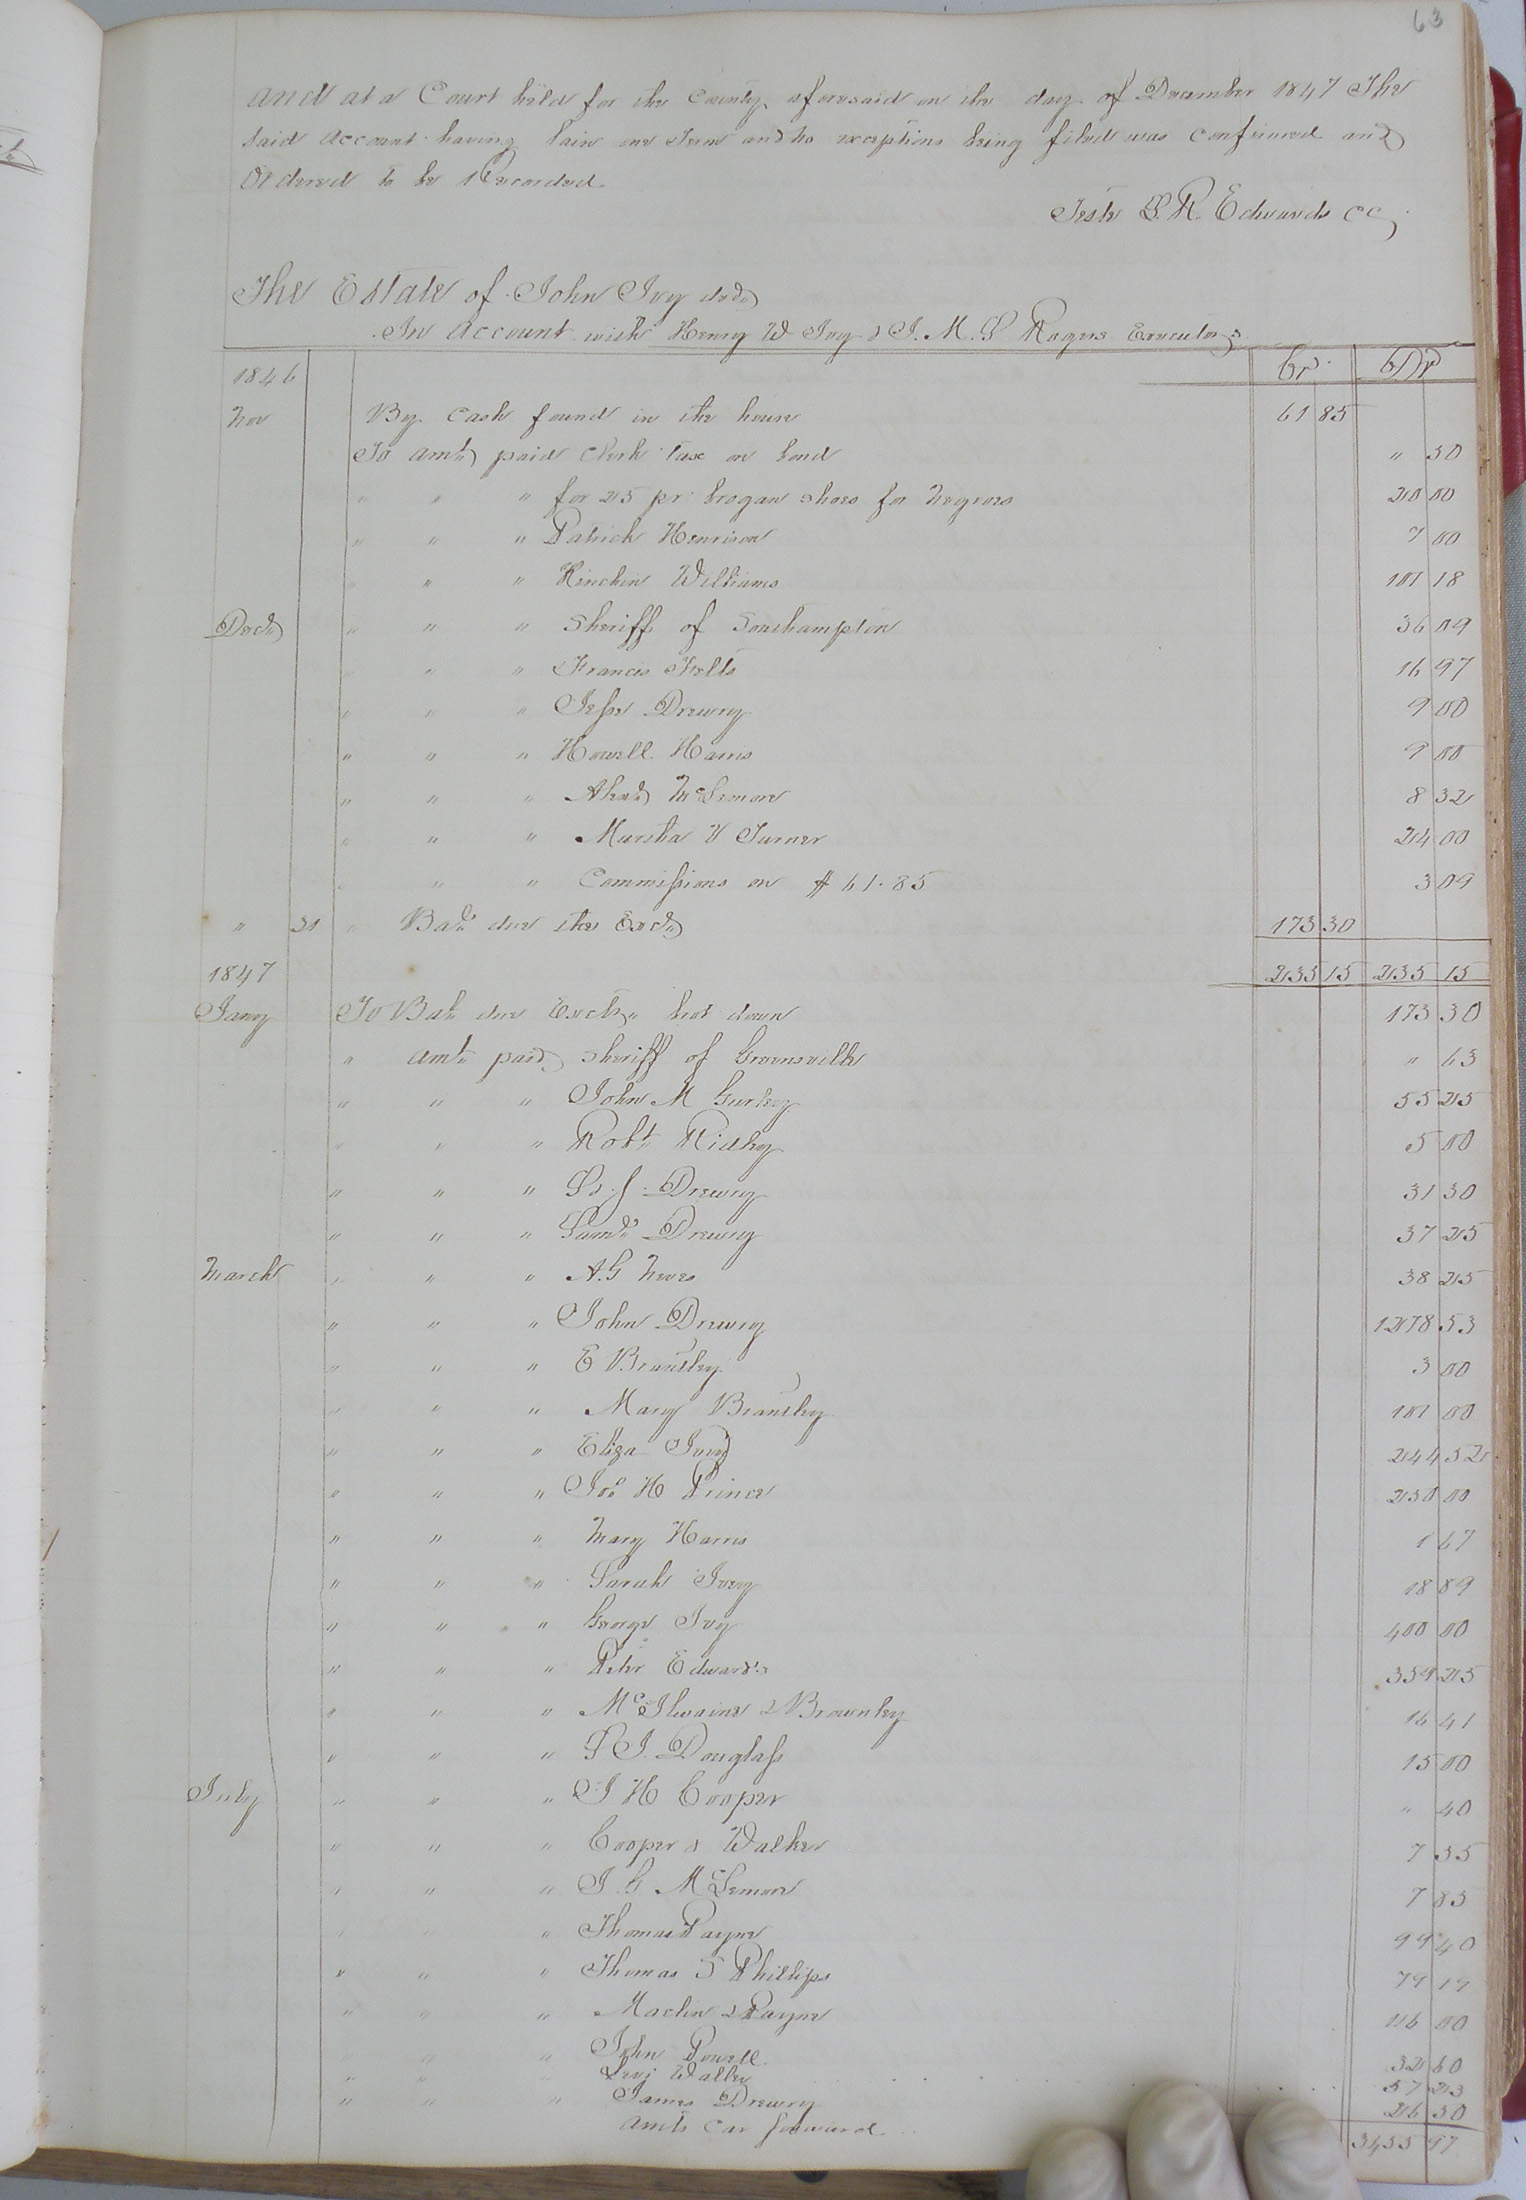 63
and at a Court held for the County aforesaid on the day of December 1847 The
said Account having lain one Term and no exceptions being filed was confirmed and
Ordered to be Recorded.
Teste L. R. Edwards CC
The Estate of John Ivy decd
In Account with Henry W Ivy & J. M. S Rogers Executors
1846 Cr Dr
Nov By Cash found in the house 61 85
To amt paid Clerk tax on bond " 50
" " " for 25 pr brogan shoes for Negroes 20 00
" " " Patrick Henrison 7 00
" " Kinchin Williams 101 18
Decr " " " Sheriff of Southampton 36 09
" " Francis Felts 16 97
" " " Jesse Drewry 9 00
" " " Howell Harris 9 00
" " " McLemore 8 32
" " " Martha V Turner 24 00
" " " Commissions on $61.85 3 09
" 31 " Bal due the Exors 173 30
1847 235 15 235 15
Jany To Bal due Exors brot down 173 30
" amt paid Sheriff of Greensville " 63
" " " John M Gurley 55 25
" " " Robt Ridley 5 00
" " " Drewry 31 30
" " " Saml Drewry 37 25
March " " " A. G Neves 38 25
" " " John Drewry 1278 53
" " " E Brantley 3 00
" " " Mary Brantley 101 00
" " " Eliza Ivey 244 52
" " " Jos H Prince 250 00
" " " Mary Harris 1 67
" " " Sarah Ivey 18 89
" " " George Ivy 400 00
" " " Peter Edwards 359 25
" " " McIlwaine & Brownley 16 41
" " " Douglass 15 00
July " " " J H Cooper " 40
" " " Cooper & Walker 7 55
" " " J. G McLemore 7 85
" Thomas Payne 99 40
" " " Thomas S Phillips 79 17
" " " Maclin & Payne 116 00
" " " John Powell 32 60
" " Levi Walker 57 23
" " " James Drewry 26 50
Amts Car forward 3455 97